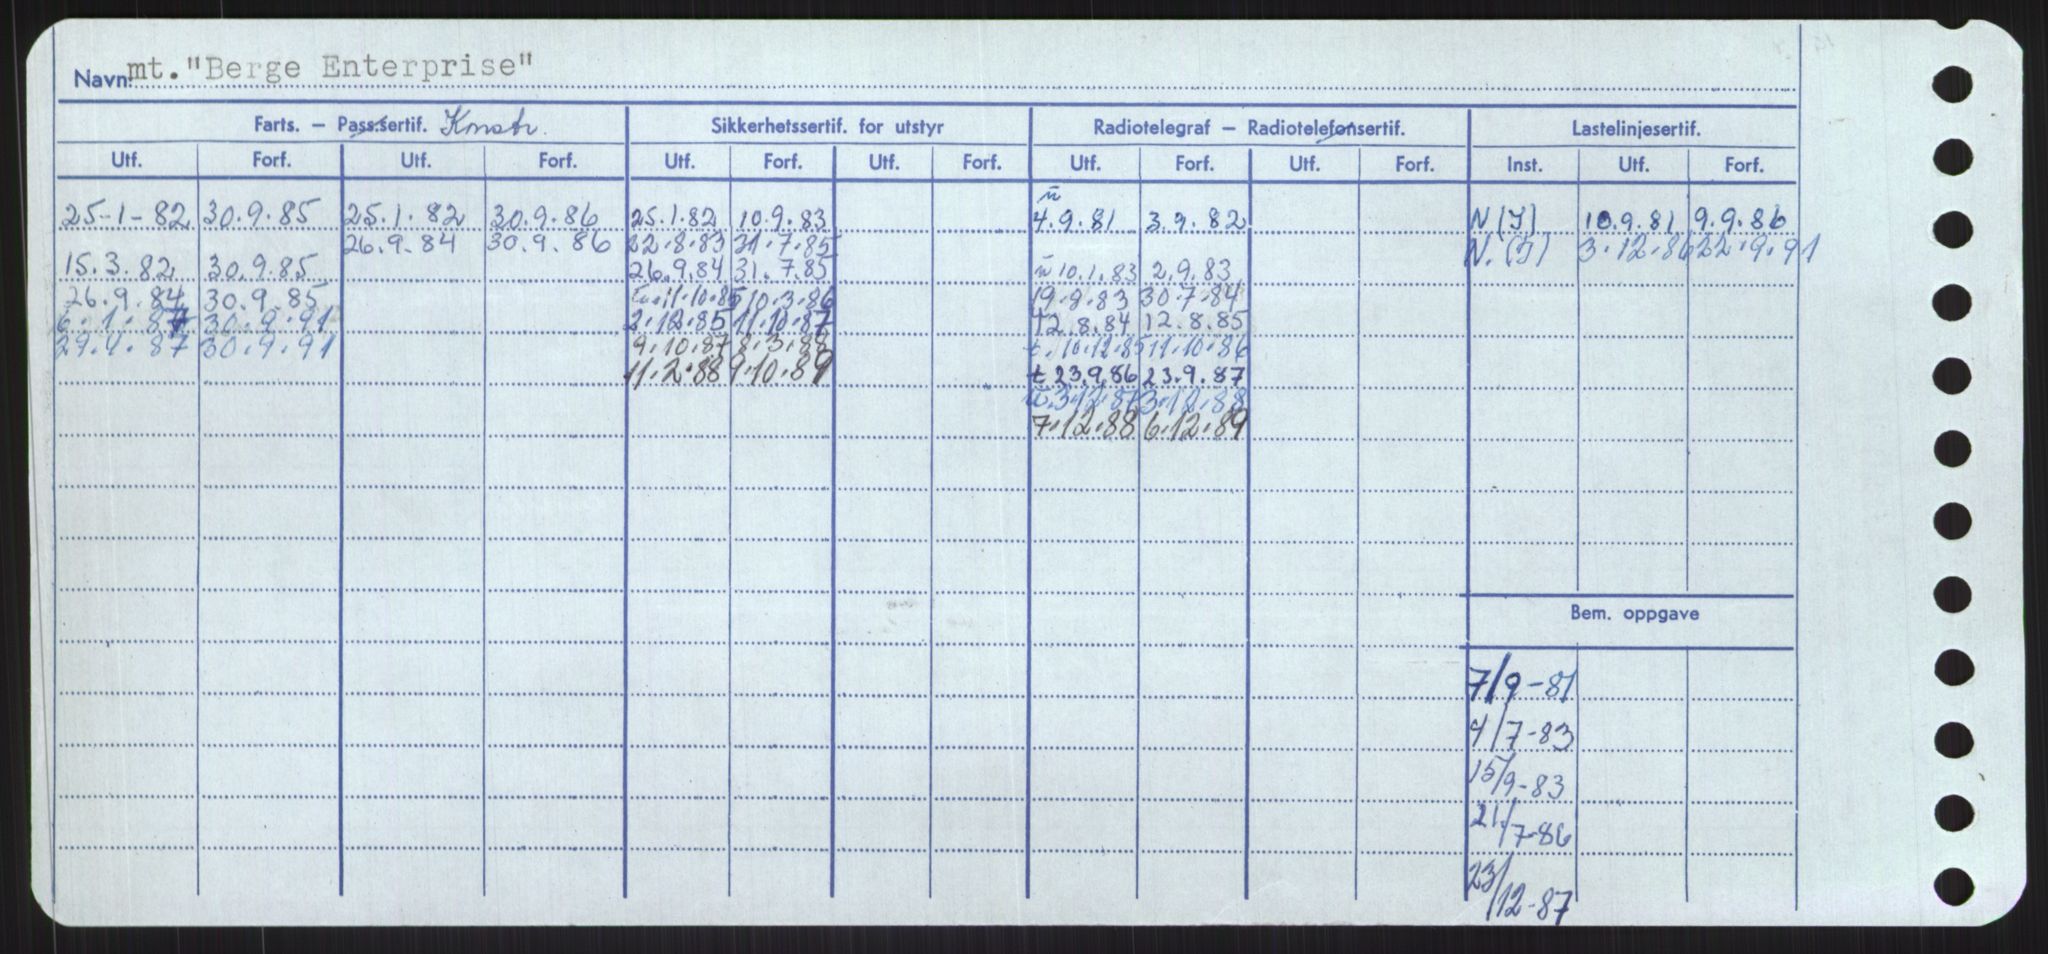 Navn: mt. "Berge Enterprise"
Farts. – Pass.sertif. Konstr. Sikkerhetssertif. for utstyr Radiotelegraf – Radiotelefonsertif. Lastelinjesertif.
Utf. Forf. Utf. Forf. Utf. Forf. Utf. Forf. Utf. Forf. Utf. Forf. Inst. Utf. Forf.
25-1-82 30.9.85 25.1.82 30.9.86 25.1.82 10.9.83 4.9.81 3.9.82 N(I) 10.9.81 9.9.86
26.9.84 30.9.86 22.8.83 31.7.85 N.(I) 3.12.86 22.9.91
15.3.82 30.9.85 26.9.84 31.7.85 ū 10.1.83 2.9.83
26.9.84 30.9.85 11.10.85 10.3.86 19.8.83 30.7.84
6.1.87 30.9.91 2.12.85 11.10.87 12.8.84 12.8.85
29.4.87 30.9.91 9.10.87 8.3.88 t. 10.12.85 11.10.86
11.2.88 9.10.89 t 23.9.86 23.9.87
ū 3.12.87 3.12.88
7.12.88 6.12.89
Bem. oppgave
7/9-81
4/7-83
15/9-83
21/7-86
23/12-87